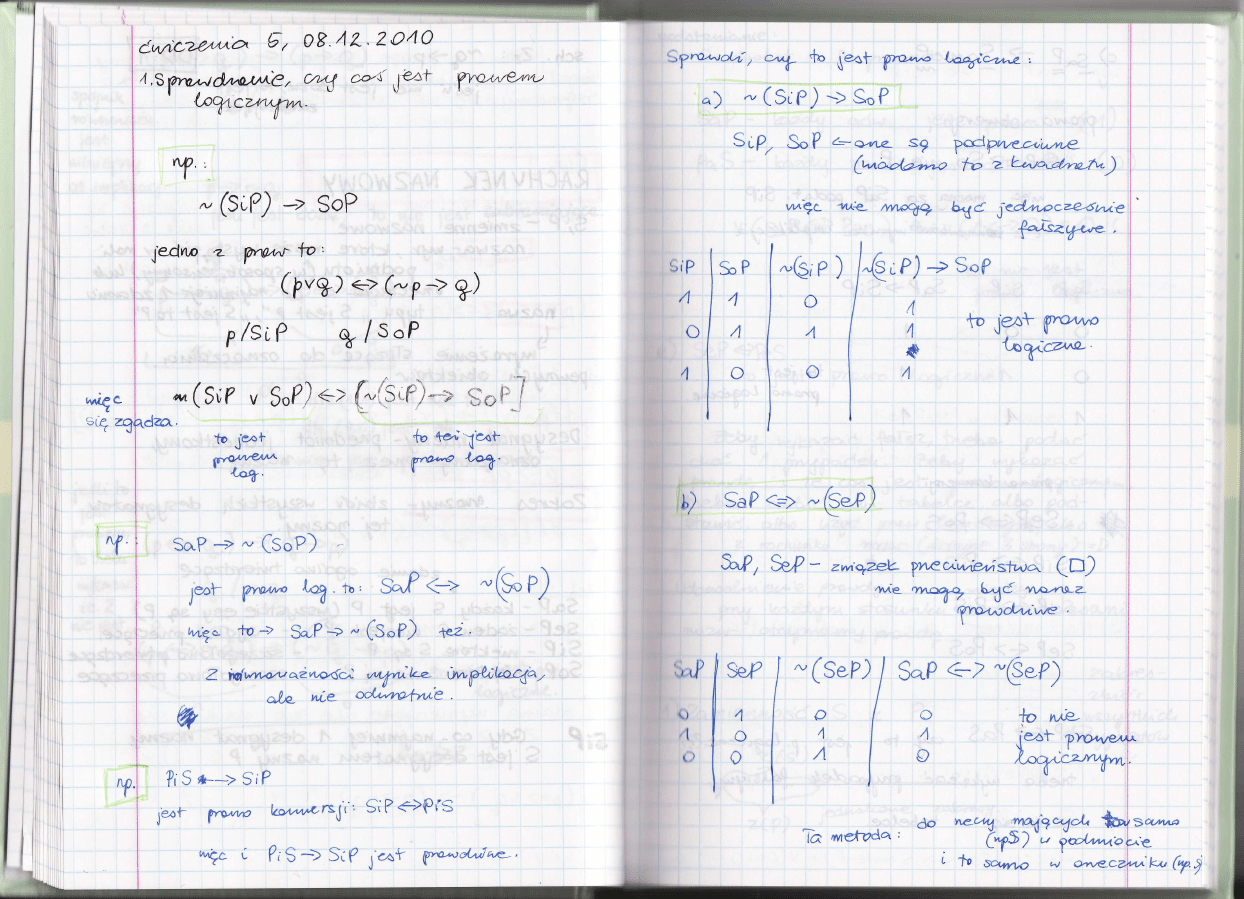 ćwiczenia 5, 08.12.2010
1. Sprawdzanie, czy coś jest prawem
logicznym.
np.:
~(SiP) → SoP
jedno z praw to:
(p∨q) ↔ (~p → q)
p/SiP q/SoP
więc
się zgadza.
(SiP ∨ SoP) ↔ [~(SiP) → SoP]
to jest
prawem
log.
to też jest
prawo log.
np.:
SaP → ~(SoP)
jest prawo log. to: SaP ↔ ~(SoP)
więc to → SaP → ~(SoP) też.
Z równoważności wynika implikacja,
ale nie odwrotnie.
np.
PiS → SiP
jest prawo konwersji: SiP ↔ PiS
więc i PiS → SiP jest prawdziwe.
Sprawdź, czy to jest prawo logiczne:
a) ~(SiP) → SoP
SiP, SoP ← one są podprzeciwne
(wiadomo to z kwadratu)
więc nie mogą być jednocześnie
fałszywe.
SiP SoP ~(SiP) ~(SiP) → SoP
1 1 0 1
0 1 1 1
1 0 0 1
to jest prawo
logiczne.
b) SaP ⇔ ~(SeP)
SaP, SeP – związek przeciwieństwa (□)
nie mogą być naraz
prawdziwe.
SaP SeP ~(SeP) SaP ↔ ~(SeP)
0 1 0 0
1 0 1 1
0 0 1 0
to nie
jest prawem
logicznym.
Ta metoda:
do rzeczy mających to samo
(np S) w podmiocie
i to samo w orzeczniku (np.